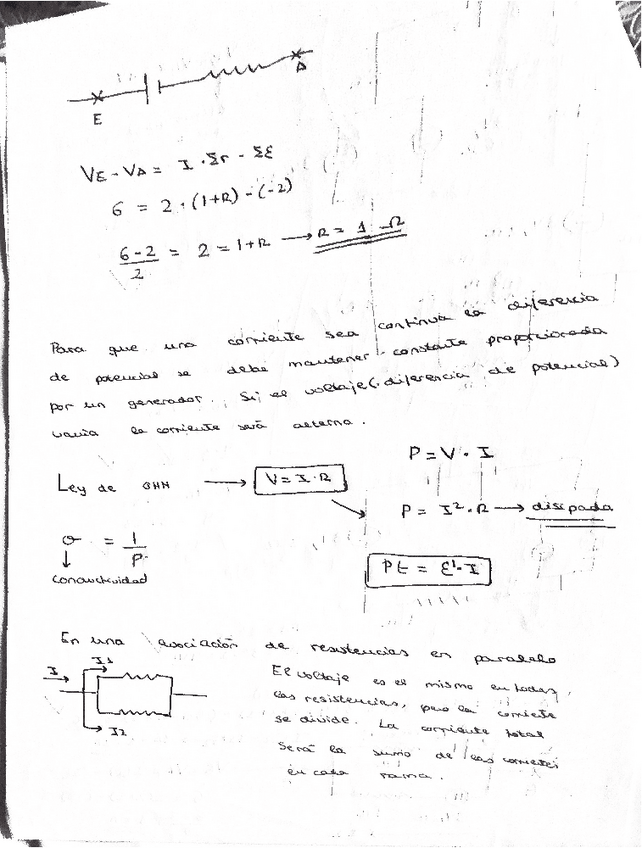 E
A
VE - VA = I · Σr - Σε
6 = 2 · (1+R) - (-2)
6-2/2 = 2 = 1+R → R = 1 Ω
Para que una corriente sea continua la diferencia
de potencial se debe mantener constante proporcionada
por un generador. Si el voltaje (diferencia de potencial)
varia la corriente será alterna.
P = V · I
Ley de OHM → V = I · R
P = I² · R → disipada
σ = 1/ρ
conductividad
Pt = ε' · I
En una asociación de resistencias en paralelo
I I1
El voltaje es el mismo en todas
las resistencias, pero la corriente
se divide. La corriente total
I2
será la suma de las corrientes
en cada rama.